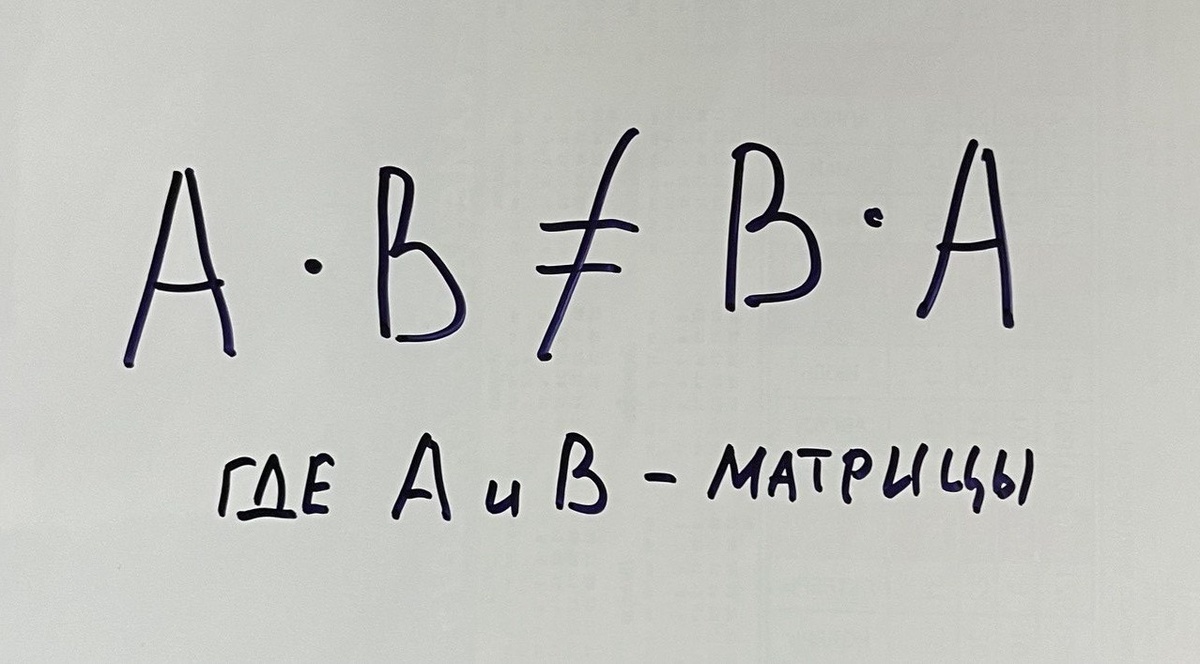 A · B ≠ B · A
ГДЕ A и B - МАТРИЦЫ